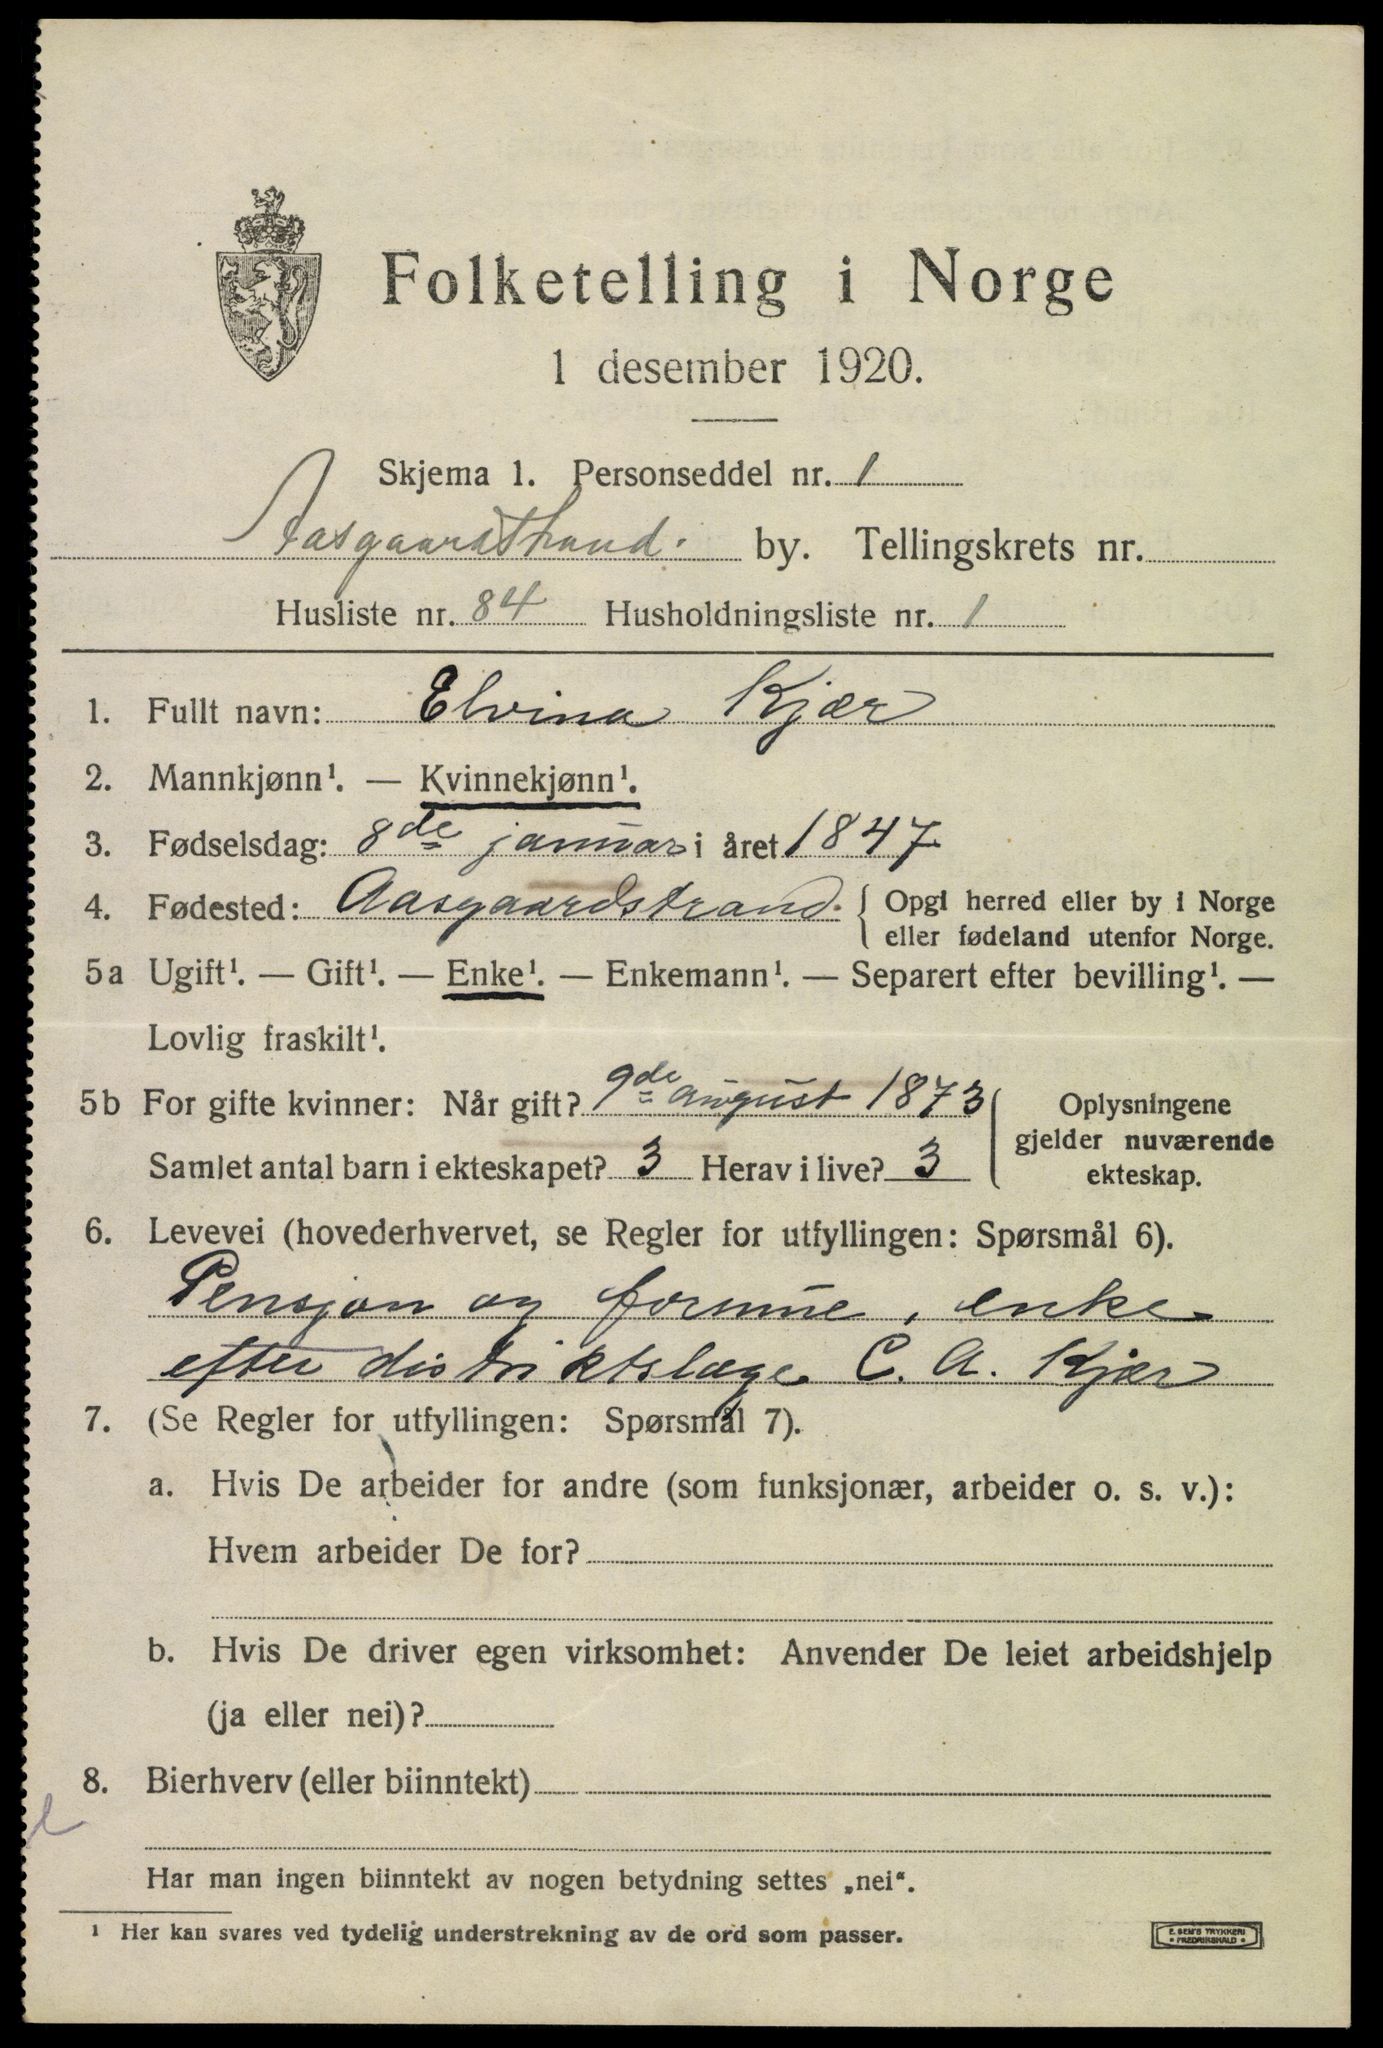 Folketelling i Norge
1 desember 1920.
Skjema 1. Personseddel nr. 1
Aasgaardstrand. by. Tellingskrets nr.
Husliste nr. 84 Husholdningsliste nr. 1
1. Fullt navn: Elvina Kjær
2. Mannkjønn¹. — Kvinnekjønn¹.
3. Fødselsdag: 8de januar i året 1847
4. Fødested: Aasgaardstrand. { Opgi herred eller by i Norge
eller fødeland utenfor Norge.
5a Ugift¹. — Gift¹. — Enke¹. — Enkemann¹. — Separert efter bevilling¹. —
Lovlig fraskilt¹.
5b For gifte kvinner: Når gift? 9de august 1873
Samlet antal barn i ekteskapet? 3 Herav i live? 3
Oplysningene
gjelder nuværende
ekteskap.
6. Levevei (hovederhvervet, se Regler for utfyllingen: Spørsmål 6).
Pensjon og formue, enke
efter distriktslæge C. A. Kjær
7. (Se Regler for utfyllingen: Spørsmål 7).
a. Hvis De arbeider for andre (som funksjonær, arbeider o. s. v.):
Hvem arbeider De for?
b. Hvis De driver egen virksomhet: Anvender De leiet arbeidshjelp
(ja eller nei)?
8. Bierhverv (eller biinntekt)
Har man ingen biinntekt av nogen betydning settes „nei“.
¹ Her kan svares ved tydelig understrekning av de ord som passer.
E. SEM'S TRYKKERI
• FREDRIKSHALD •